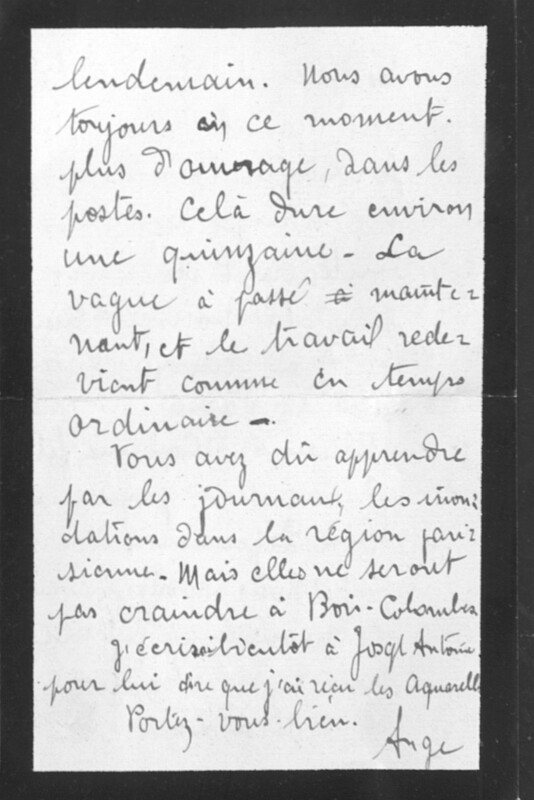 lendemain. Nous avons
toujours en ce moment.
plus d'ouvrage, dans les
postes. Celà dure environ
une quinzaine - La
vague à passé mainte-
nant, et le travail rede-
vient comme en temps
ordinaire -.
Vous avez dû apprendre
par les journaux, les inon-
dations dans la région pari-
sienne - Mais elles ne seront
pas craindre à Bois-Colombes
J'écrirai bientôt à Antoine.
pour lui dire que j'ai reçu les Aquarelles
Portez-vous bien.
Ange